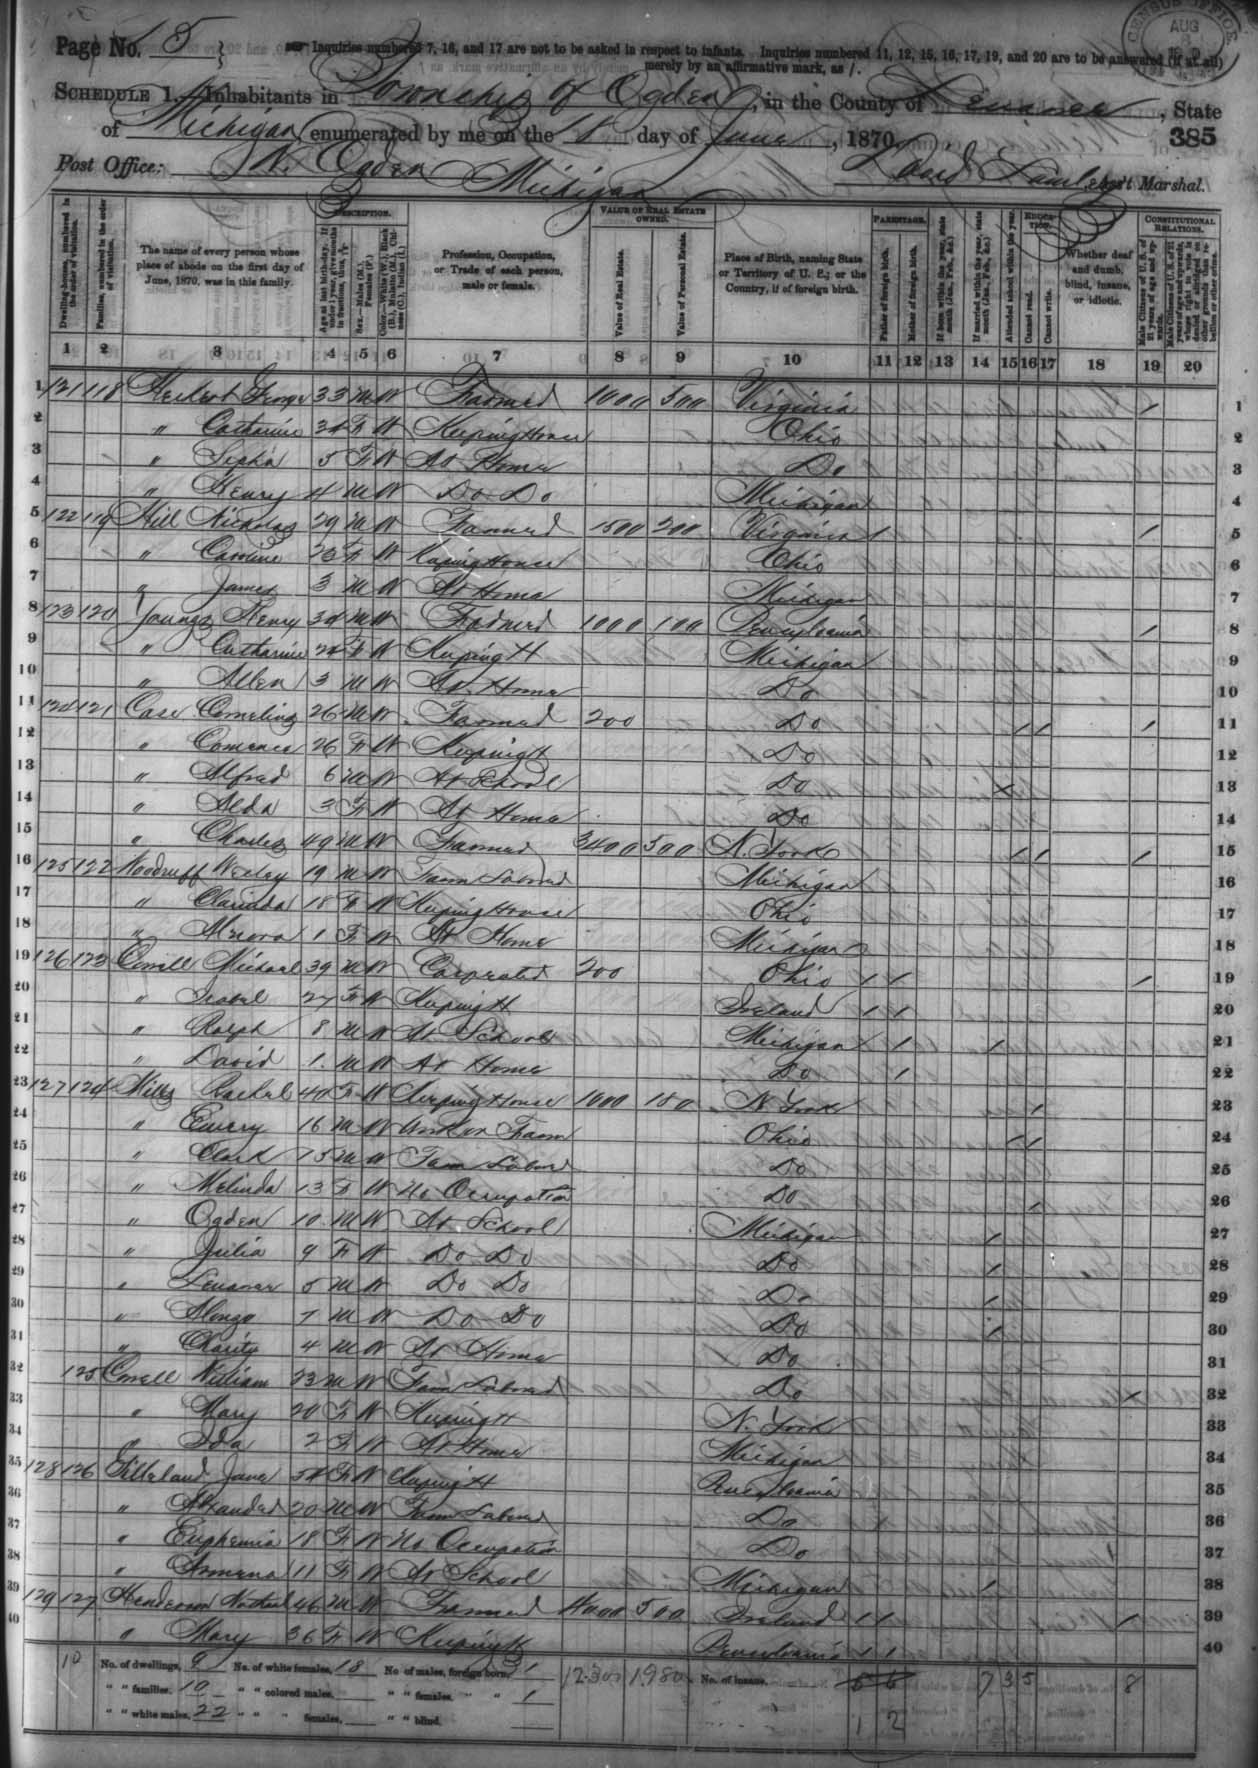 Page No. 15
Inquiries numbered 7, 16, and 17 are not to be asked in respect to infants. Inquiries numbered 11, 12, 15, 16, 17, 19, and 20 are to be answered (if at all)
merely by an affirmative mark, as /.
CENSUS OFFICE.
AUG
SCHEDULE 1.—Inhabitants in Township of Ogden, in the County of Lenawee, State
of Michigan, enumerated by me on the day of June, 1870.
385
Post Office: N. Ogden Michigan
David Ass't Marshal.
DESCRIPTION.
VALUE OF REAL ESTATE OWNED.
PARENTAGE.
EDUCATION.
CONSTITUTIONAL RELATIONS.
Dwelling-houses, numbered in the order of visitation.
Families, numbered in the order of visitation.
The name of every person whose place of abode on the first day of June, 1870, was in this family.
Age at last birth-day. If under 1 year, give months in fractions, thus,
Sex.—Males (M.), Females (F.)
Color.—White (W.), Black (B.), Mulatto (M.), Chinese (C.), Indian (I.)
Profession, Occupation, or Trade of each person, male or female.
Value of Real Estate.
Value of Personal Estate.
Place of Birth, naming State or Territory of U. S.; or the Country, if of foreign birth.
Father of foreign birth.
Mother of foreign birth.
If born within the year, state month (Jan., Feb., &c.)
If married within the year, state month (Jan., Feb., &c.)
Attended school within the year.
Cannot read.
Cannot write.
Whether deaf and dumb, blind, insane, or idiotic.
Male Citizens of U. S. of 21 years of age and upwards.
Male Citizens of U. S. of 21 years of age and upwards, whose right to vote is denied or abridged on other grounds than rebellion or other crime.
1 2 3 4 5 6 7 8 9 10 11 12 13 14 15 16 17 18 19 20
1 121 118 George 33 M W Farmer 1000 500 Virginia / 1
2 " Catharine F W Keeping House Ohio 2
3 " 5 F W At Home Do 3
4 " Henry 4 M W Do Do Michigan 4
5 122 119 Hill Nicholas 29 M W Farmer 1500 200 Virginia / / 5
6 " Caroline 23 F W Keeping House Ohio 6
7 " James 3 M W At Home Michigan 7
8 123 120 Youngs Henry 34 M W Farmer 1000 100 Pennsylvania / 8
9 " Catharine 24 F W Keeping H Michigan 9
10 " Allen 3 M W At Home Do 10
11 124 121 Case Cornelius 26 M W Farmer 200 Do / / / 11
12 " 26 F W Keeping H Do 12
13 " Alfred 6 M W At School Do × 13
14 " Alda 3 F W At Home Do 14
15 " Charles 49 M W Farmer 3400 500 N. York / / / 15
16 125 122 Woodruff Wesley 19 M W Farm Laborer Michigan 16
17 " Clarinda 18 F W Keeping House Ohio 17
18 " 1 F W At Home Michigan 18
19 126 123 Michael 39 M W Carpenter 200 Ohio / / / 19
20 " Isabel 27 F W Keeping H Ireland / / 20
21 " Ralph 8 M W At School Michigan / / 21
22 " David 1 M W At Home Do / 22
23 127 124 Rachel 40 F W Keeping House 1000 180 N York / 23
24 " Emery 16 M W Work on Farm Ohio / / 24
25 " Clark 15 M W Farm Laborer Do 25
26 " Melinda 13 F W No Occupation Do / 26
27 " Ogden 10 M W At School Michigan / 27
28 " Julia 9 F W Do Do Do / 28
29 " M W Do Do Do / 29
30 " Alonzo 7 M W Do Do Do / 30
31 " Charity 4 M W At Home Do 31
32 125 William 23 M W Farm Laborer Do / 32
33 " Mary 20 F W Keeping H N. York 33
34 " Ida 2 F W At Home Michigan 34
35 128 126 Jane 54 F W Keeping H Pennsylvania 35
36 " Alexander 20 M W Farm Laborer Do 36
37 " Euphemia 18 F W No Occupation Do 37
38 " 11 F W At School Michigan / 38
39 129 127 Henderson 46 M W Farmer 4000 500 Ireland / / / 39
40 " Mary 36 F W Keeping H Pennsylvania / / 40
10 No. of dwellings, 9 No. of white females, 18 No. of males, foreign born, 1 12300 1980 No. of insane, 6 6 7 3 5 8
" " families, 10 " " colored males, " " females, " " 1
" " white males, 22 " " " females, " " blind, 1 2